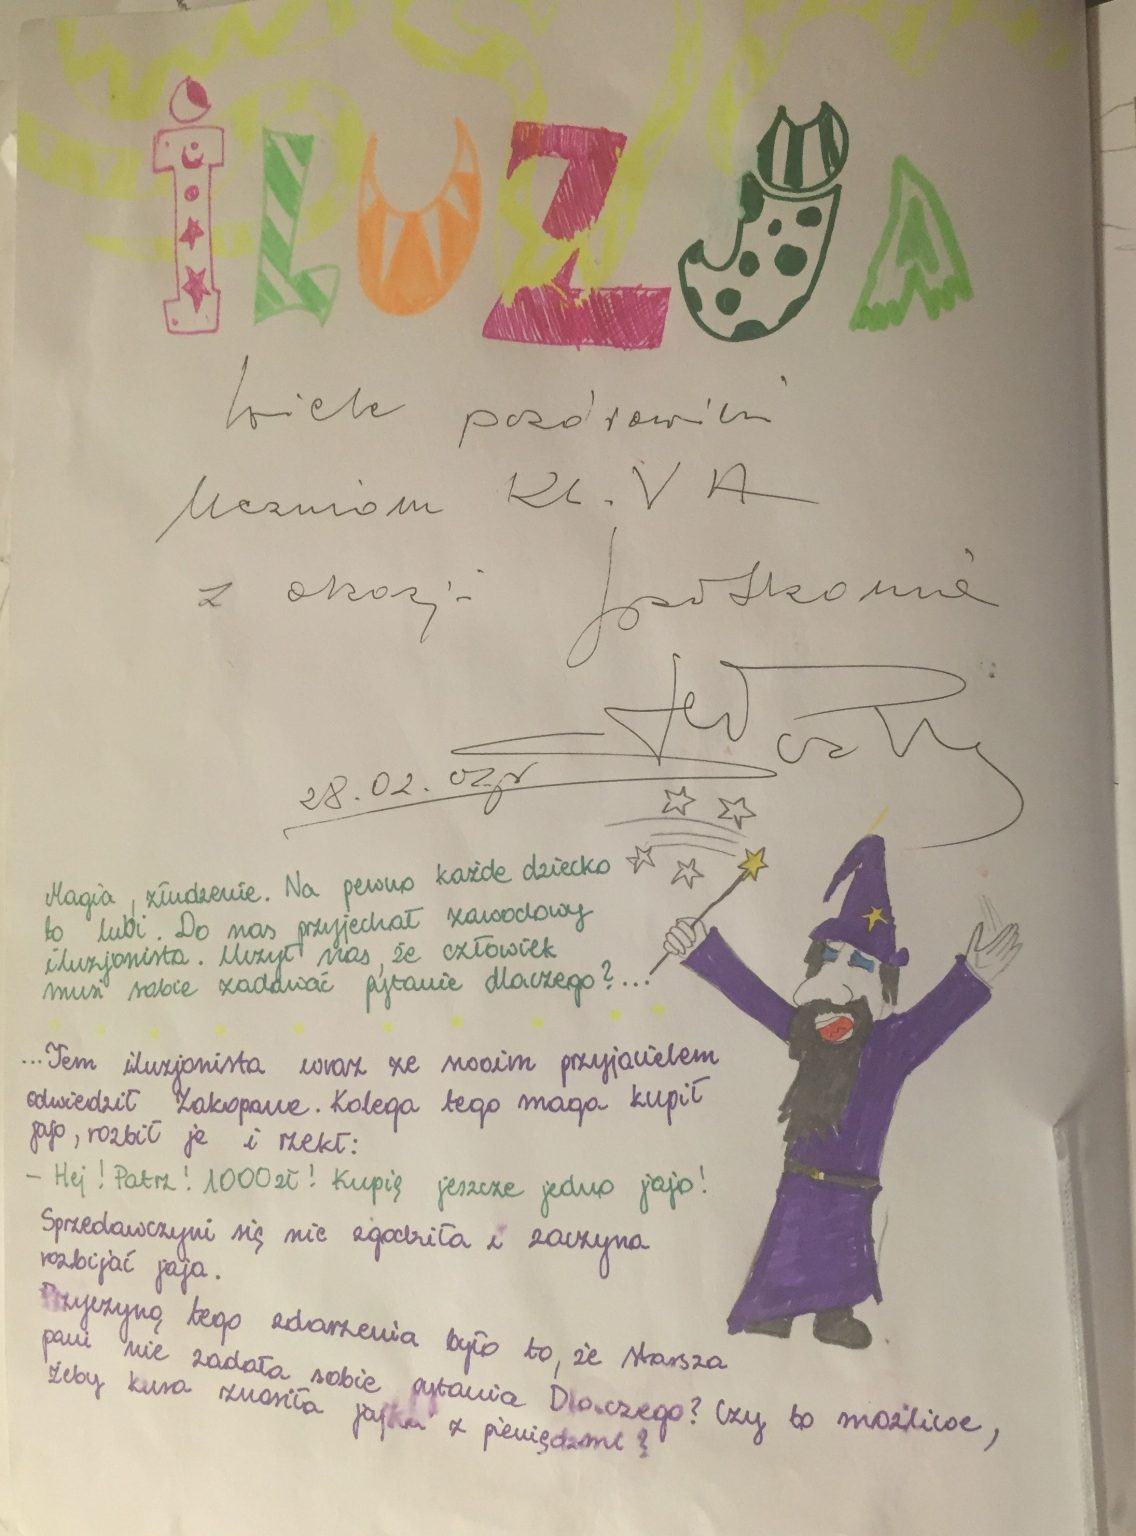 iLUZJA
Wiele pozdrowień
Uczniom Kl. V A
z okazji spotkania
28.02.
Magia, złudzenie. Na pewno każde dziecko
to lubi. Do nas przyjechał zawodowy
iluzjonista. Uczył nas, że człowiek
musi sobie zadawać pytanie dlaczego?...
...Ten iluzjonista wraz ze swoim przyjacielem
odwiedził Zakopane. Kolega tego maga kupił
jajo, rozbił je i rzekł:
- Hej! Patrz! 1000zł! Kupię jeszcze jedno jajo!
Sprzedawczyni się nie zgodziła i zaczyna
rozbijać jaja.
Przyczyną tego zdarzenia było to, że starsza
pani nie zadała sobie pytania Dlaczego? Czy to możliwe,
żeby kura znosiła jajka z pieniędzmi?